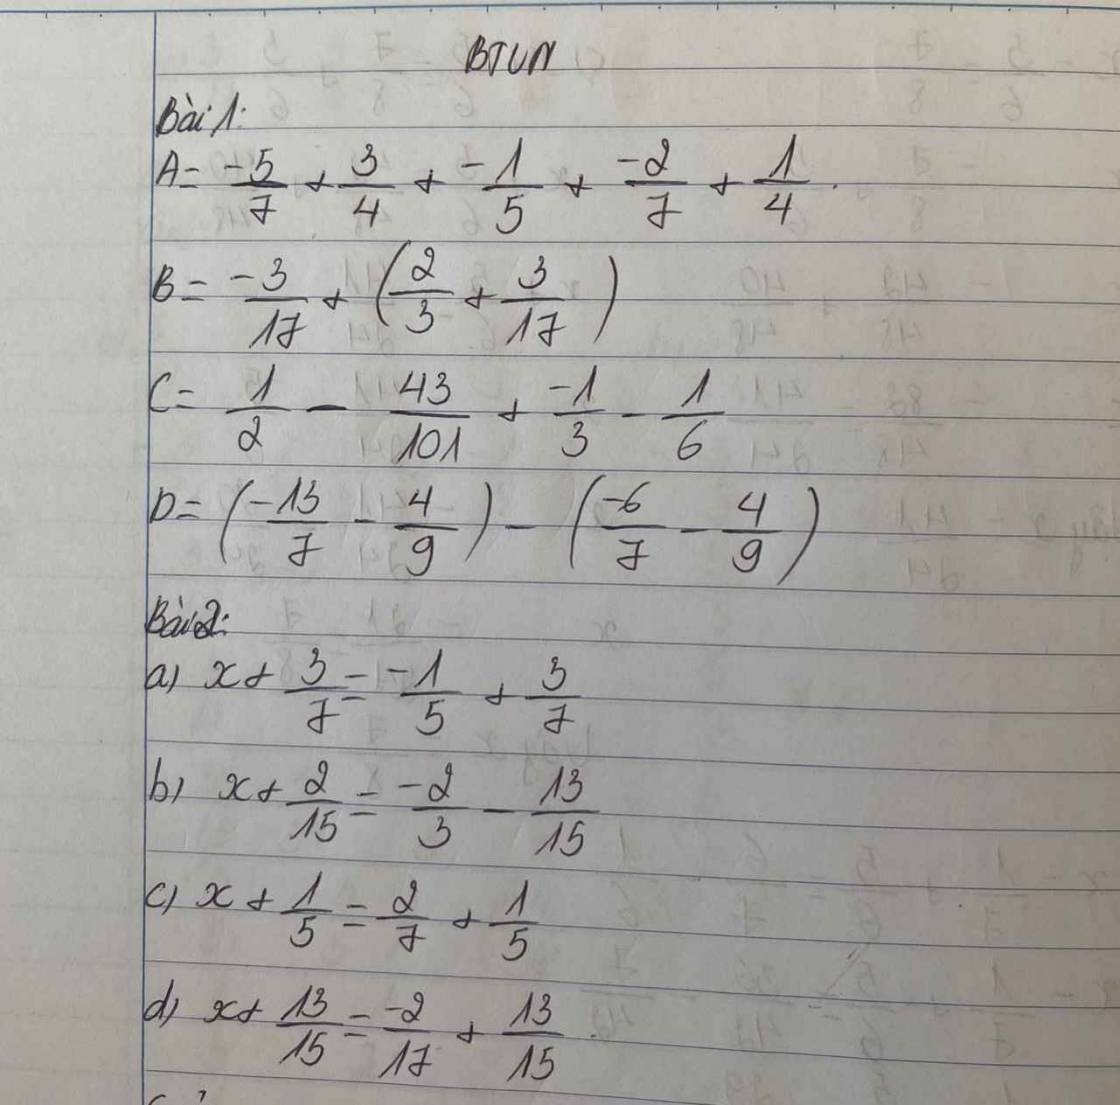 BTVN
Bài 1:
A = -5/7 + 3/4 + -1/5 + -2/7 + 1/4.
B = -3/17 + (2/3 + 3/17)
C = 1/2 - 43/101 + -1/3 - 1/6
D = (-13/7 - 4/9) - (-6/7 - 4/9)
Bài 2:
a) x + 3/7 = -1/5 + 3/7
b) x + 2/15 = -2/3 - 13/15
c) x + 1/5 = 2/7 + 1/5
d) x + 13/15 = -2/17 + 13/15